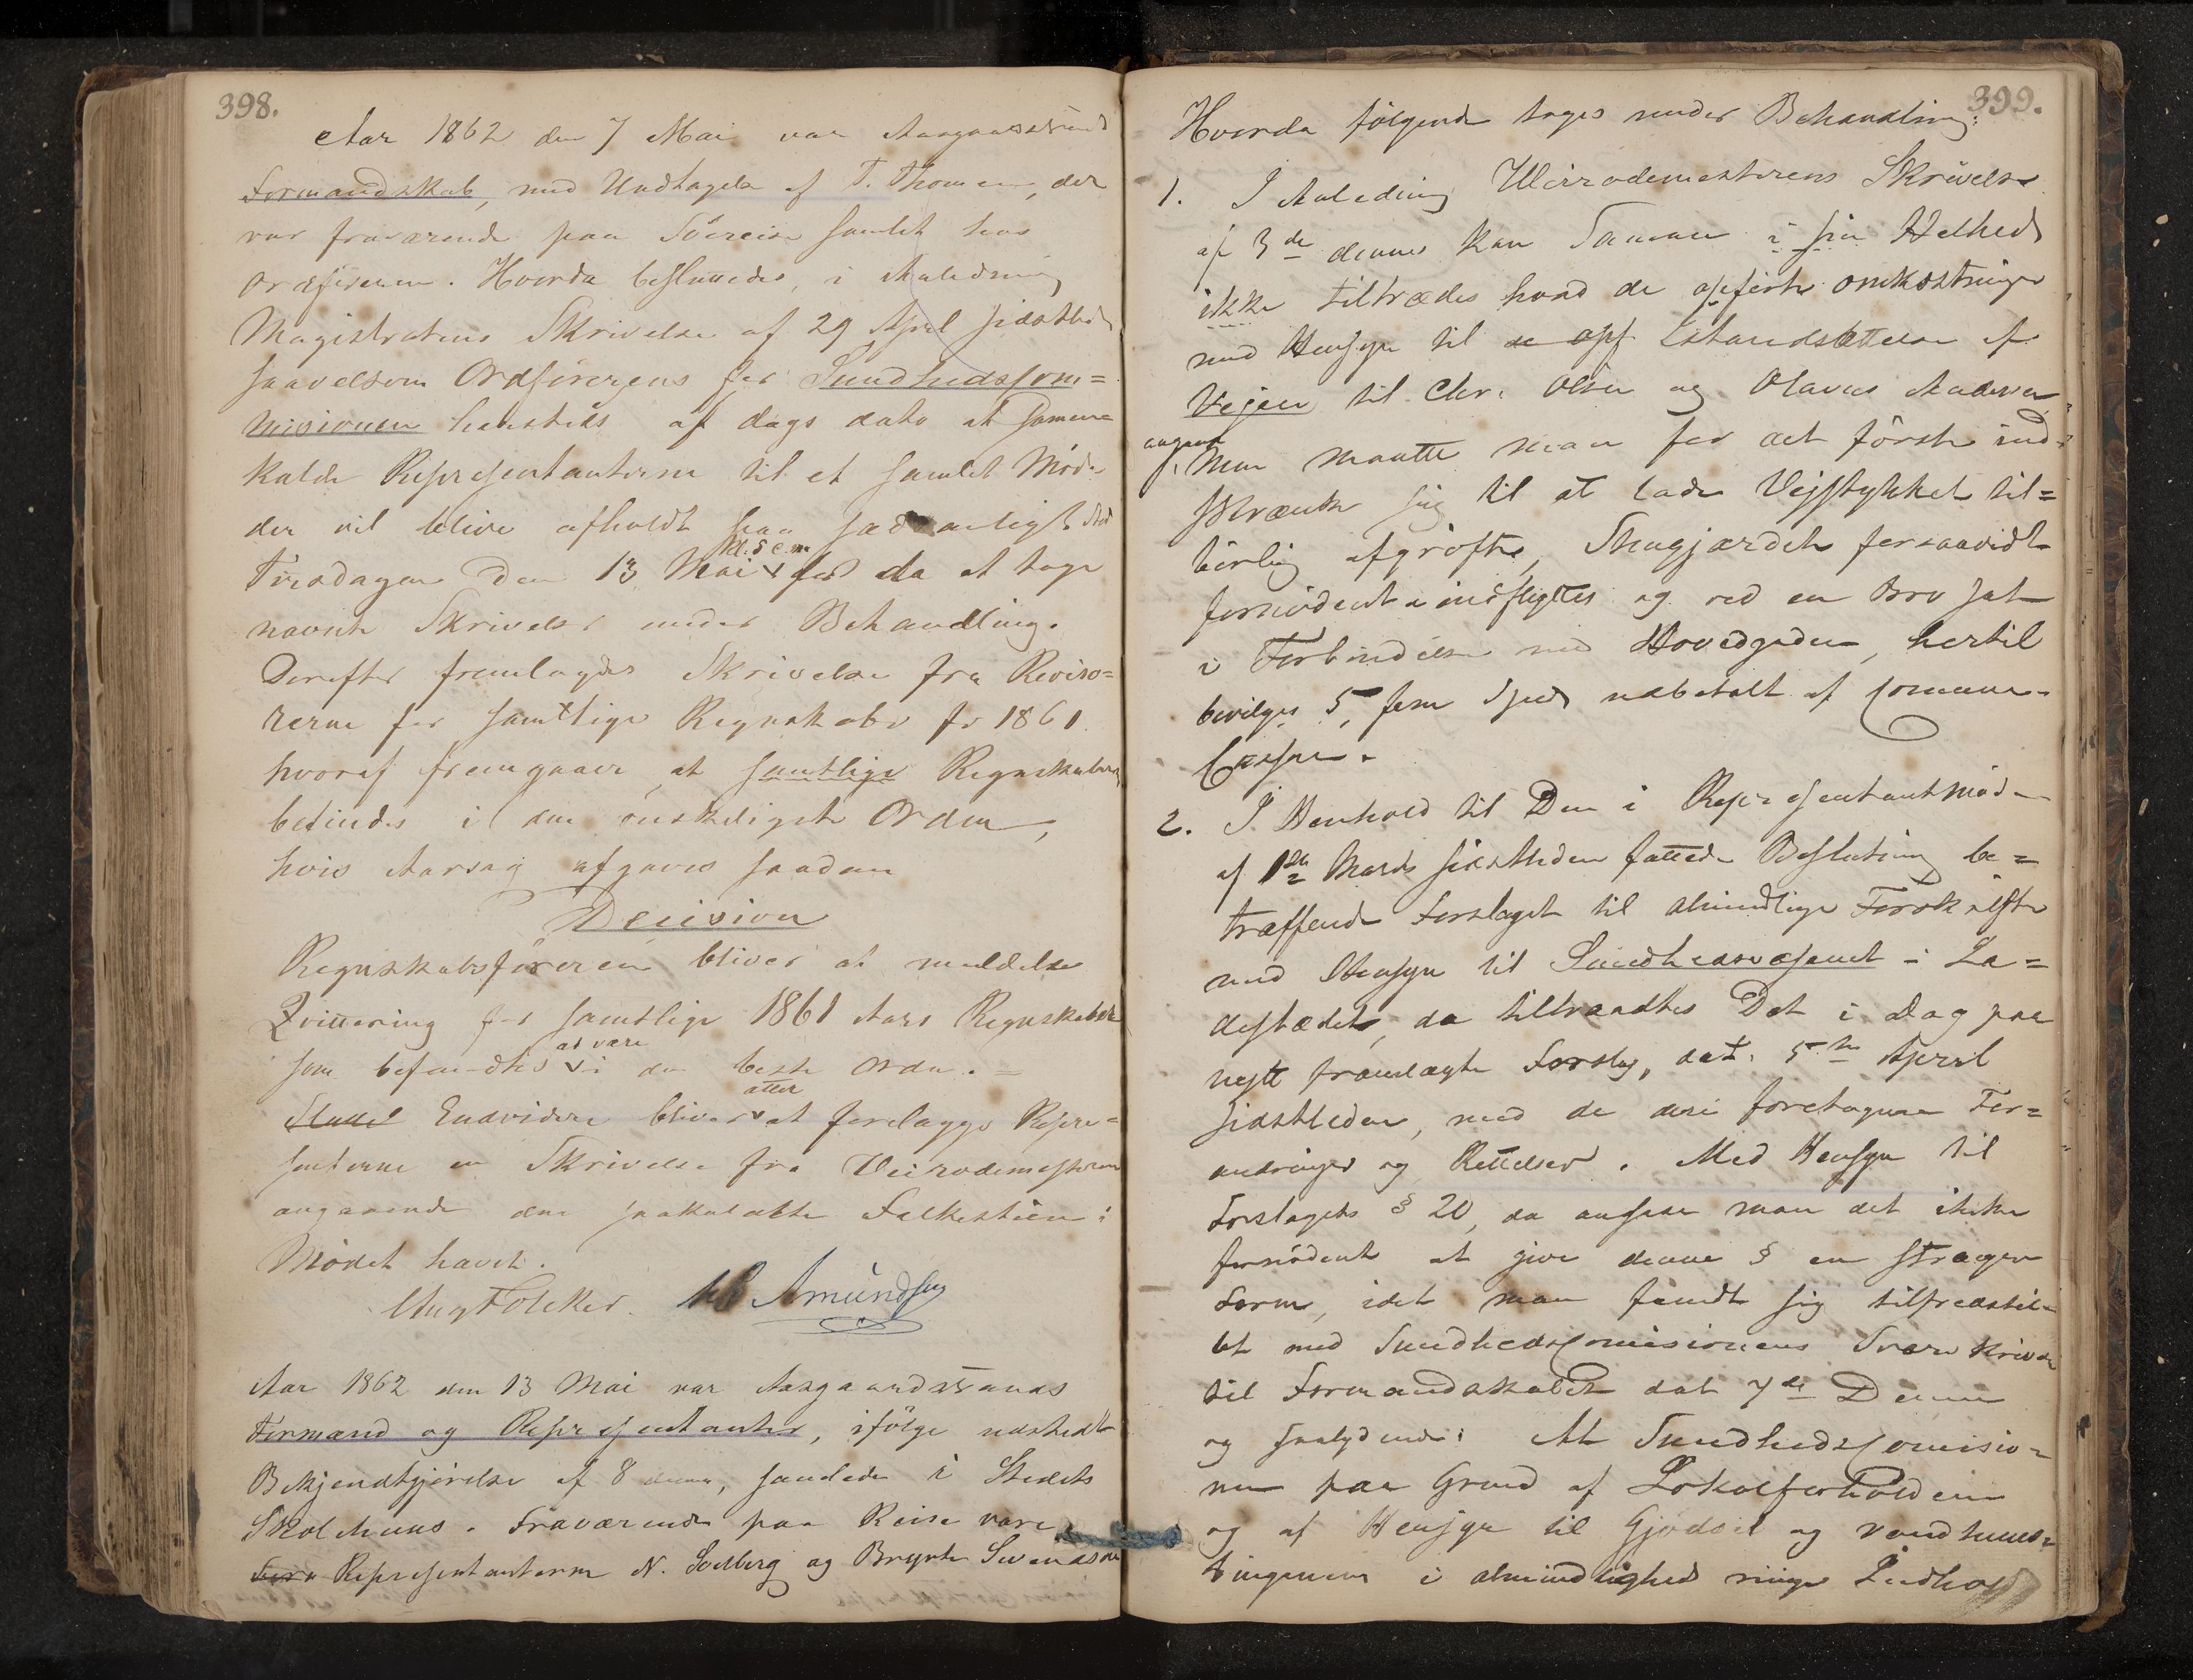 398.
Aar 1862 den 7 Mai var Aasgaardstrands
Formandskab, med Undtagelse af T. Thomsen, der
var fraværende paa Söereise samlet hos
Ordföreren. Hvorda besluttedes, i Anledning
Magistratens Skrivelse af 29 April sidstleden
saavelsom Ordförerens for Sundhedscom=
misionen af dags dato at sammen
kalde Representanterne til et samlet Möde
der vil blive afholdt paa sædvanligt Sted
Tirsdagen den 13 Mai kl. 5 e.m for da at tage
nævnte Skrivelse under Behandling.
Derefter fremlagdes Skrivelse fra Reviso=
rerne for samtlige Regnskaber for 1861.
hvoraf fremgaaer, at samtlige Regnskaber
befindes i den önskeligste Orden,
hvis Aarsag afgaves saadan
Decision
Regnskabsföreren bliver at meddele
Qvittering for samtlige 1861 Aars Regnskaber
som befandtes at være i den beste Orden. =
Endvidere bliver atter at forelægge Repre=
senterne en Skrivelse fra Veirodemesteren
angaaende den saakaldte Falkestien:
Mödet hævet.
Aug Fölcker. Amundsen
Aar 1862 den 13 Mai var Aasgaardstrands
Formænd og Representanter, ifölge udstedt
Bekjendtgjörelse af 8 denne, samlede i Stedets
Skolehuus. Fraværende paa Reise vare
Representanterne N. Solberg og Brynte Svendsen
399.
Hvorda fölgende toges under Behandling:
1. I Anledning Weirodemesterens Skrivelse
af 3de dennes kan Samme i sin Helhed
ikke tiltrædes hvad de opförte omkostninger
med Hensyn til se opf Istandsættelse af
Vejen til Chr. Olsen og Olavus Andersen
angaar,
Men maatte man for det förste ind=
skrænke sig til at lade Vejstykket til=
börlig afgröfte, Skugjærdet forsaavidt
fornödent indflyttes og ved en Bro sat
i Forbindelse med Hovedgaden, hertil
bevilges 5, fem Spd udbetalt af Commune-
Cassen.
2. I Henhold til Den i Representantmöde
af 1ste Marts sidstleden fattede Beslutning be=
træffende Forslaget til almindlige Forskrifter
med Hensyn til Sundhedsvæsenet i La=
destædet, da tiltraadtes Det i Dag paa
nytt fremlagte Forslag, dat. 5te April
sidstleden, med de deri foretagne For=
andringer og Rettelser. Med Hensyn til
Forslagets § 20, da ansaae man det ikke
fornödent at give denne § en strengere
Form, idet man fandt sig tilfredsstil=
let med SundhedsComisionens Svarskrivelse
til Formandskabet dat 7de Denne
og saalydende: At SundhedsComisio=
nen paa Grund af Lokalforholdene
og af Hensyn til Gjödsel og
i almindlighed ringe Indhold